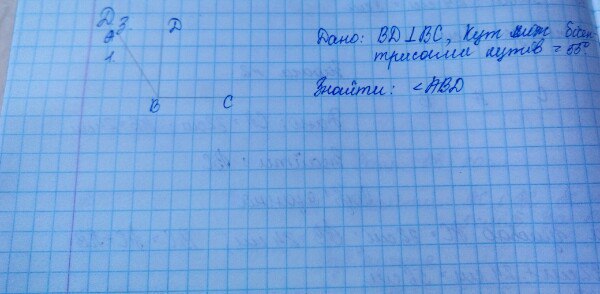 Дз.
D
A
1.
B
C
Дано: BD⊥BC, Кут між бісек
трисами кутів = 55°.
Знайти: <ABD